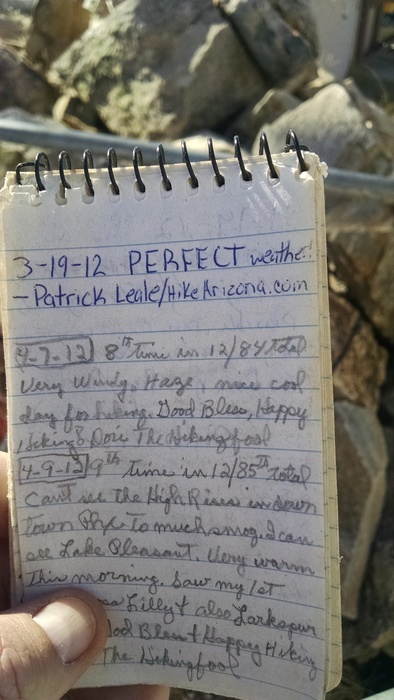 3-19-12 PERFECT weather!
- Patrick Leale/HikeArizona.com
4-7-12 8th time in 12/84 total
Very Windy, Haze, nice cool
day for hiking. Good Bless, Happy
Hiking Dori The Hikingfool
4-9-12 9th time in 12/85th total
Cant see the High Rises in down
town Phx To much smog. I can
see Lake Pleasant. Very warm
This morning. Saw my 1st
Lilly & also Larkspur
God Bless & Happy Hiking
The Hikingfool